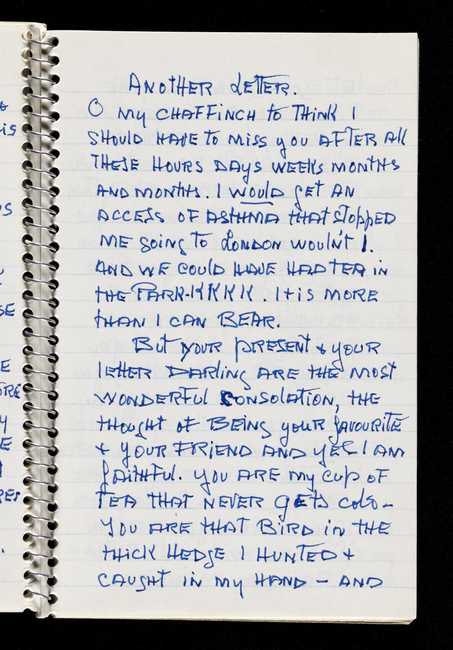 ANOTHER LETTER.
O MY CHAFFINCH TO THINK I
SHOULD HAVE TO MISS YOU AFTER ALL
THESE HOURS DAYS WEEKS MONTHS
AND MONTHS. I WOULD GET AN
ACCESS OF ASTHMA THAT STOPPED
ME GOING TO LONDON WOULN'T I.
AND WE COULD HAVE HAD TEA IN
THE PARK-KKKK. IT IS MORE
THAN I CAN BEAR.
BUT YOUR PRESENT & YOUR
LETTER DARLING ARE THE MOST
WONDERFUL CONSOLATION, THE
THOUGHT OF BEING YOUR FAVOURITE
& YOUR FRIEND AND YES I AM
FAITHFUL. YOU ARE MY CUP OF
TEA THAT NEVER GETS COLD –
YOU ARE THAT BIRD IN THE
THICK HEDGE I HUNTED &
CAUGHT IN MY HAND – AND